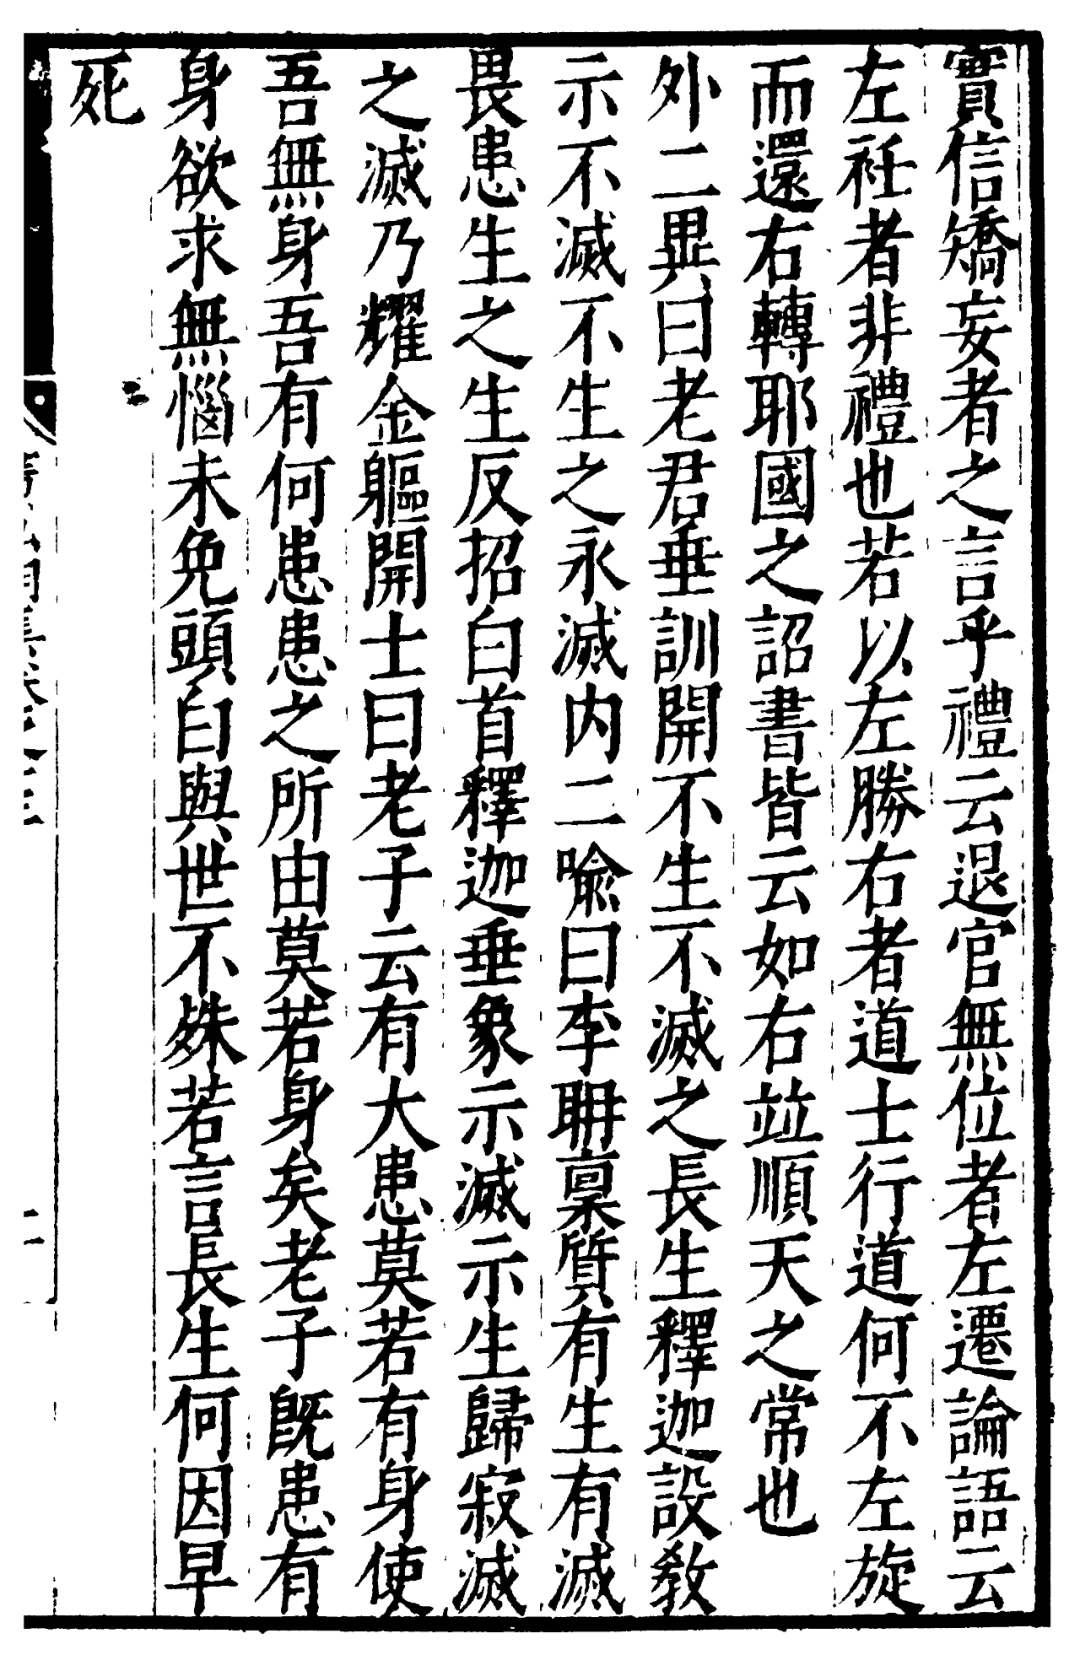 實信矯妄者之言乎禮云退官無位者左遷論語云
左袵者非禮也若以左勝右者道士行道何不左旋
而還右轉耶國之詔書皆云如右竝順天之常也
外二異曰老君垂訓開不生不滅之長生釋迦設教
示不滅不生之永滅内二喻曰李聃稟質有生有滅
畏患生之生反招白首釋迦垂象示滅示生歸寂滅
之滅乃耀金軀開士曰老子云有大患莫若有身使
吾無身吾有何患患之所由莫若身矣老子既患有
身欲求無惱未免頭白與世不殊若言長生何因早
死